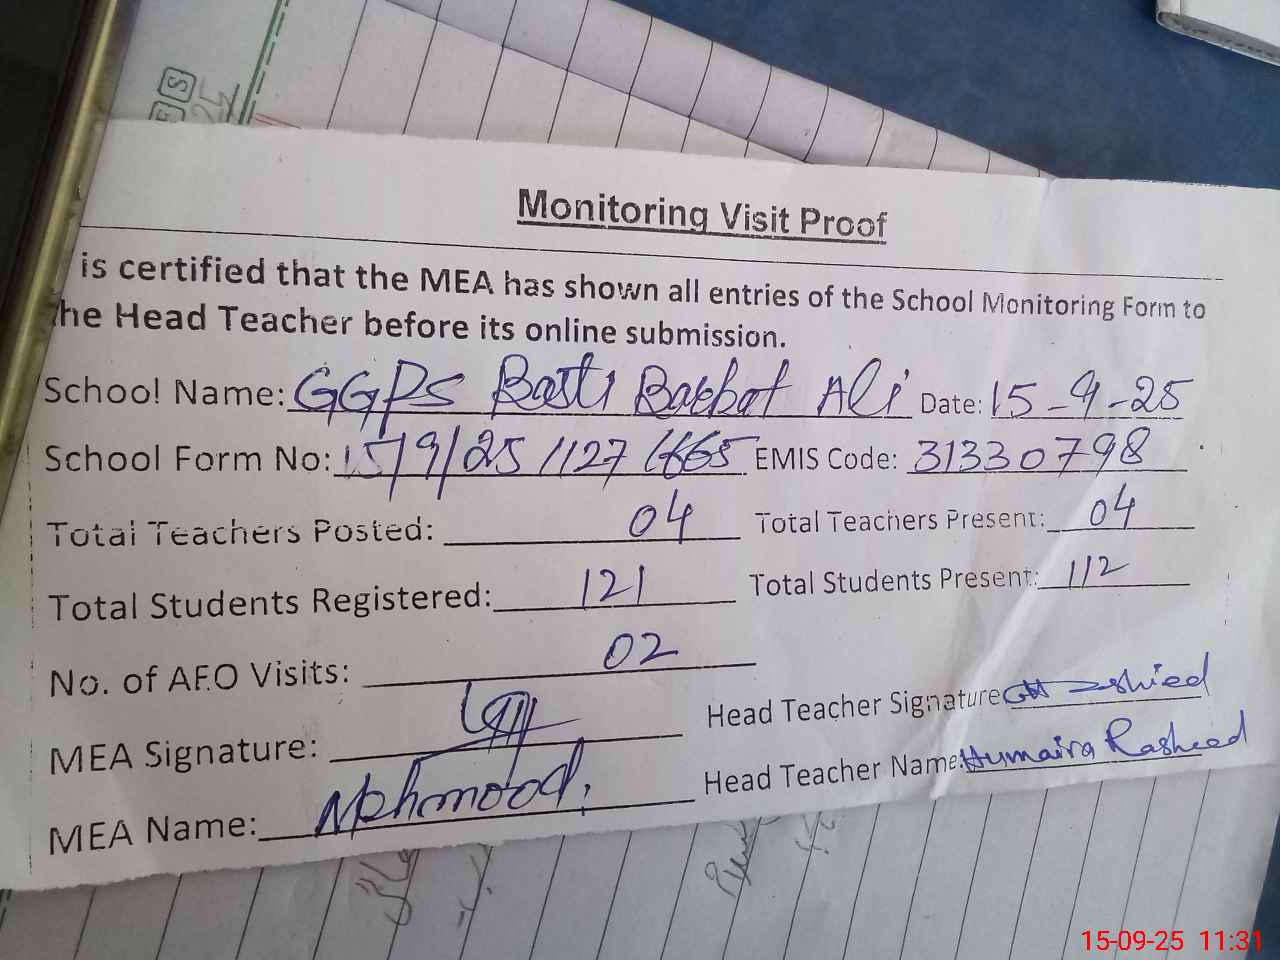 Monitoring Visit Proof
is certified that the MEA has shown all entries of the School Monitoring Form to
the Head Teacher before its online submission.
School Name: GGPS Basti Barkat Ali Date: 15-9-25
School Form No: 15/9/25 1127 EMIS Code: 31330798
Total Teachers Posted: 04 Total Teachers Present: 04
Total Students Registered: 121 Total Students Present: 112
No. of AEO Visits: 02
MEA Signature: Head Teacher Signature
MEA Name: Mehmood. Head Teacher Name: Humaira Rasheed
15-09-25 11:31